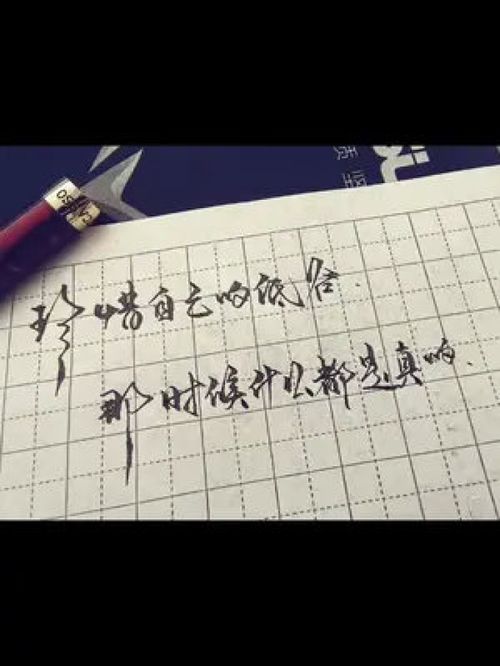 珍惜自己的低谷.
那时候什么都是真的.